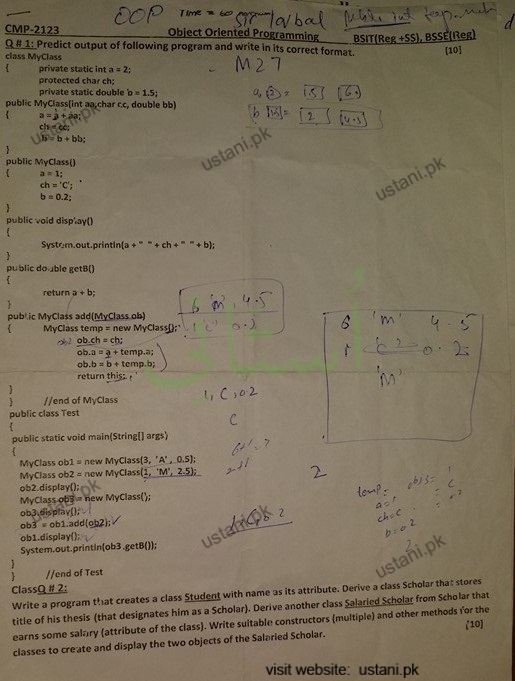 OOP
CMP-2123 Object Oriented Programming BSIT(Reg +SS), BSSE(Reg)
Q # 1: Predict output of following program and write in its correct format. [10]
class MyClass
{ private static int a = 2;
protected char ch;
private static double b = 1.5;
public MyClass(int aa,char cc, double bb)
{ a = a + aa;
ch = cc;
b = b + bb;
}
public MyClass()
{ a = 1;
ch = 'C';
b = 0.2;
}
public void display()
{
System.out.println(a + " " + ch + " " + b);
}
public double getB()
{
return a + b;
}
public MyClass add(MyClass ob)
{ MyClass temp = new MyClass();
ob.ch = ch;
ob.a = a + temp.a;
ob.b = b + temp.b;
return this;
}
} //end of MyClass
public class Test
{
public static void main(String[] args)
{
MyClass ob1 = new MyClass(3, 'A', 0.5);
MyClass ob2 = new MyClass(1, 'M', 2.5);
ob2.display();
MyClass ob3 = new MyClass();
ob3.display();
ob3 = ob1.add(ob2);
ob1.display();
System.out.println(ob3.getB());
}
} //end of Test
ClassQ # 2:
Write a program that creates a class Student with name as its attribute. Derive a class Scholar that stores
title of his thesis (that designates him as a Scholar). Derive another class Salaried Scholar from Scholar that
earns some salary (attribute of the class). Write suitable constructors (multiple) and other methods for the
classes to create and display the two objects of the Salaried Scholar. [10]
M27
6 'M', 4.5
1 'C' 0.2
6 'M' 4.5
'M'
C
2
ustani.pk
ustani.pk
ustani.pk
ustani.pk
ustani.pk
ustani.pk
أستاني
visit website: ustani.pk